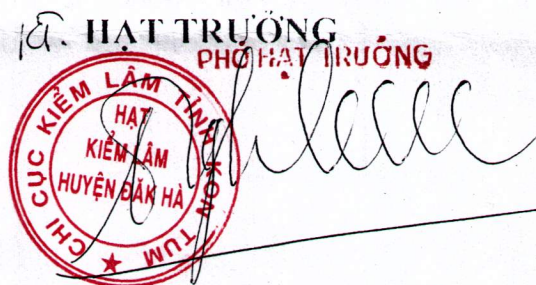 KT. HẠT TRƯỞNG
PHÓ HẠT TRƯỞNG
CHI CỤC KIỂM LÂM TỈNH KON TUM
HẠT
KIỂM LÂM
HUYỆN ĐĂK HÀ